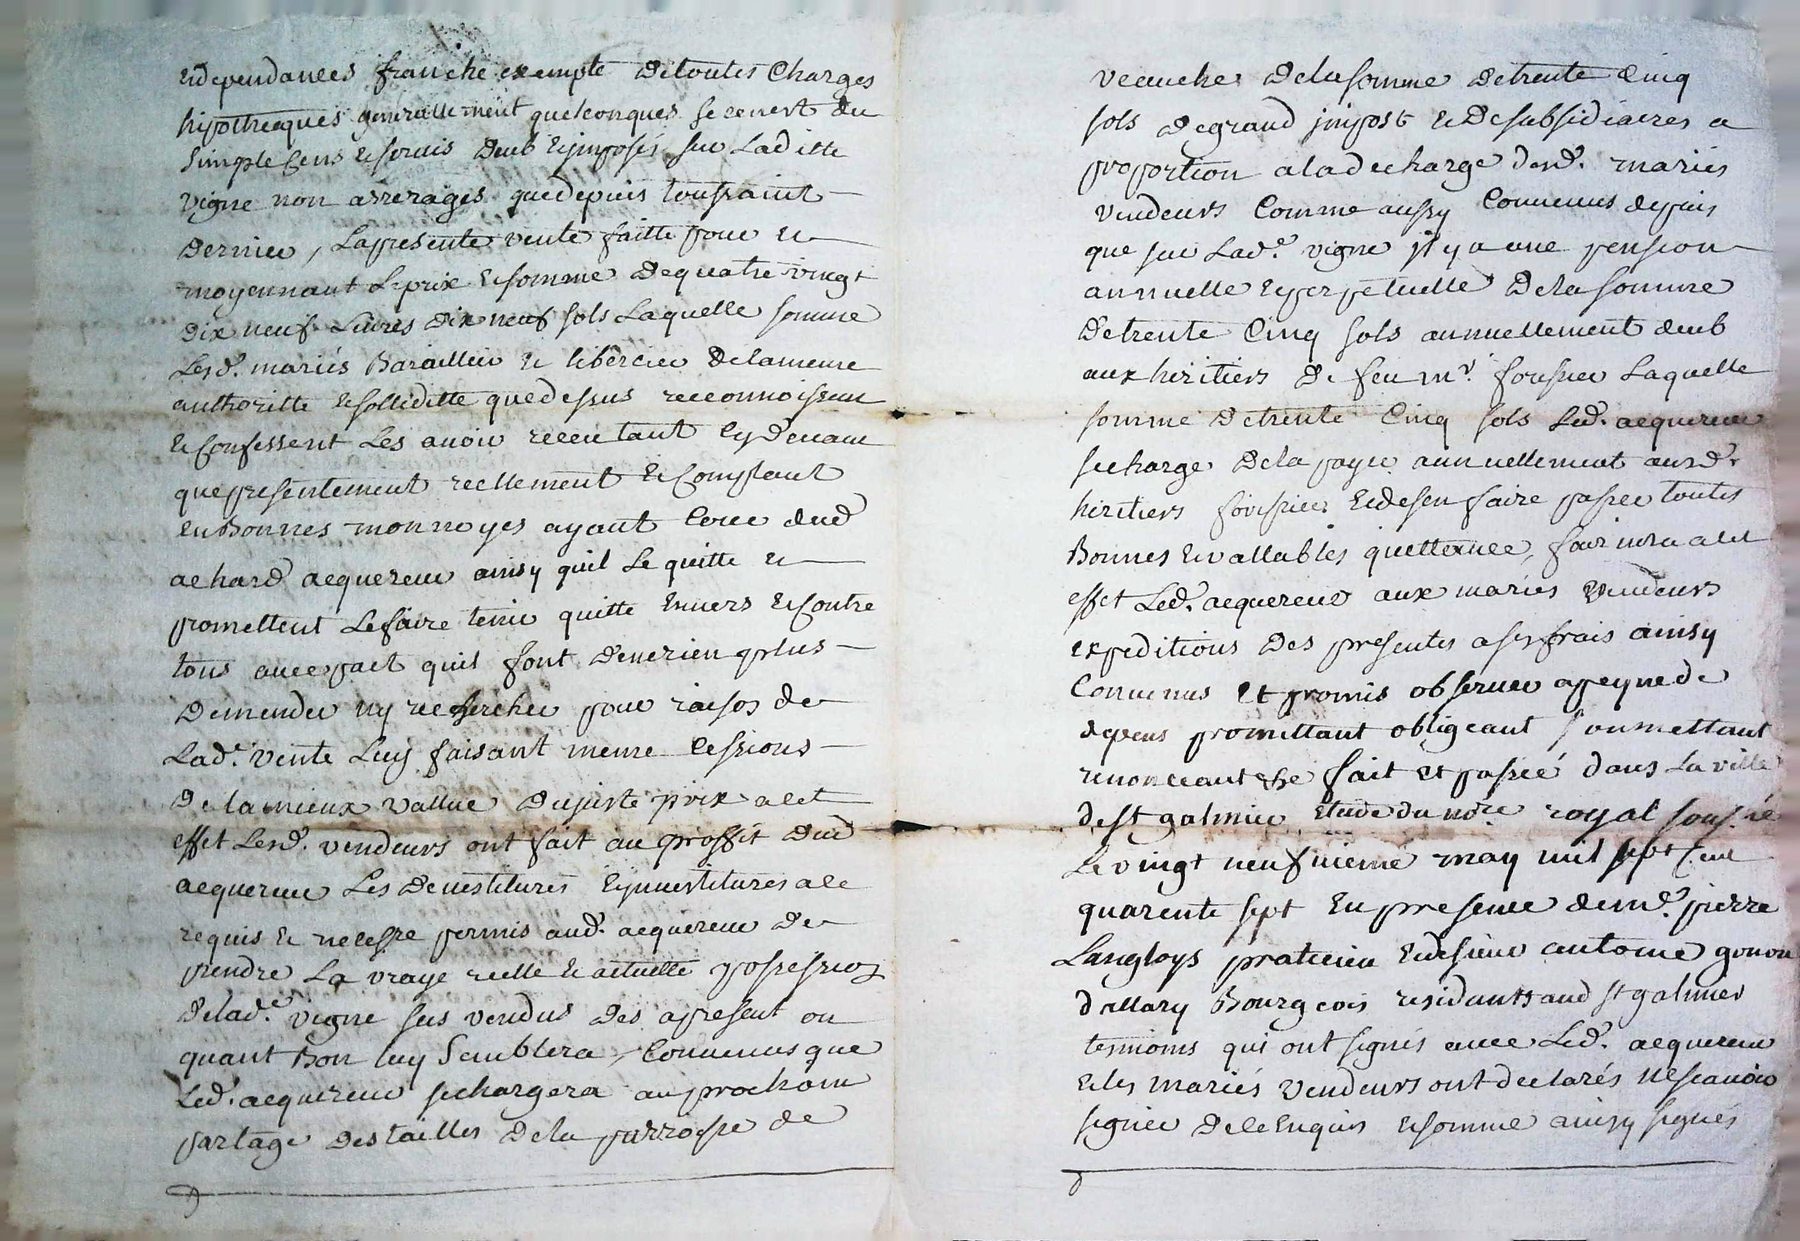 Endependances franche exempte de toutes Charges
hipotheques generallement quelconques se cenest du
simple Cens & servis deub & jmposés sur Laditte
vigne non arrerages que depuis toussaint
dernier, La presente vente faitte pour et
moyennant Le prix & somme de quatre vingt
dix neuf Livres dix neuf sols Laquelle somme
Lesd. mariés Baraillier & libercier de la meme
authoritte & solliditte que dessus reconnoissent
& Confessent Les avoir receu tant Cy devant
que presentement reellement & Comptant
En Bonnes monnoyes ayant Cour dud
achard acquereur ainsy quil Le quitte et
promettent Le faire tenir quitte Envers & Contre
tous avec pact quil font den rien plus
demender ny rechercher pour raison de
Lad.e vente Luy faisant meme Cessions
de la mieux vallue du juste prix a cet
effet Lesd. vendeurs ont fait au proffit dud
acquereur Les devestitures & jnvestitures a ce
requis & necessre permis aud. acquereur de
prendre La vraye reelle & actuelle possession
de lad.e vigne sus vendus des apresent ou
quant Bon luy Semblera, Convenus que
Led. acquereur se chargera au prochain
partage des tailles de la parroisse de
veauche de la somme de trente Cinq
sols de grand jmpost & de subsidiaires a
proportion a la decharge desd. mariés
vendeurs Comme aussy Convenus depuis
que sur Lad.e vigne jl y a une pension
annuelle & perpetuelle de la somme
de trente Cinq sols annuellement deub
aux hiritiers de feu mr. Laquelle
somme de trente Cinq sols Led. acquereur
se charge de la payer annuellement ausd.
hiritiers & de sen faire passer toutes
Bonnes & vallables quettance, fournira a cet
effet Led. acquereur aux mariés vendeurs
expeditions des presentes a ses frais ainsy
Convenus et promis observer a peyne de
depens promettant obligeant soumettant
renonceant &ce fait et passé dans La ville
de st galmier Etude du nore royal sousné
Le vingt neufvieme may mil sept Cent
quarente sept En presence de mr. pierre
Langloys praticien & de sieur antoine gonon
dallary Bourgeois residants aud st galmier
temoins qui ont signés avec Led. acquereur
& les mariés vendeurs ont declarés ne scavoir
signer de ce Enquis & sommé ainsy signés